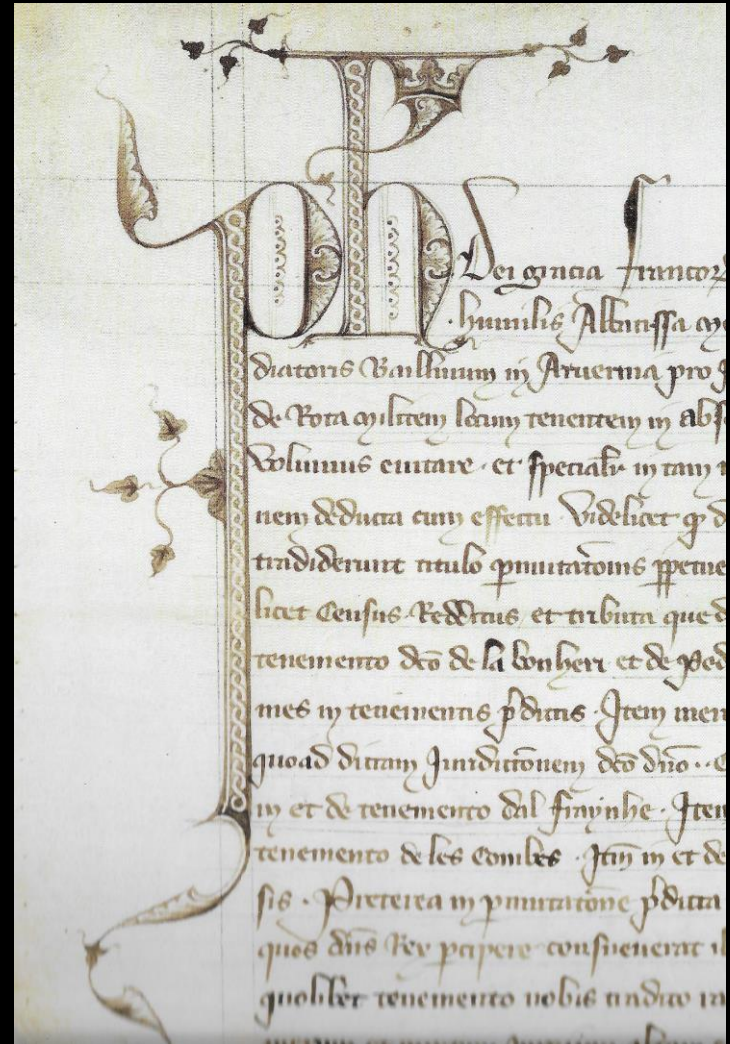 Ph Dei gracia francor
humilis Abbatissa mo
diatoris Baillivum in Arvernia pro
de Rota militem locum tenentem in abs
Volumus evitare · et specialr in tam
nem deducta cum effectu · Videlicet q d
tradiderunt titulo pmutatonis ppetue
licet Census Redditus et tributa que d
tenemento dco de la bonheri et de Pod
mes in tenementis pdictis · Item men
quoad dictam Juridictonem dco dno · ·
in et de tenemento dal fraynhe · Item
tenemento de les Combes · Itm in et de
sis · Preterea in pmutatone pdicta
quos dns Rex pcipere consueverat
quolibet tenemento vobis tradito